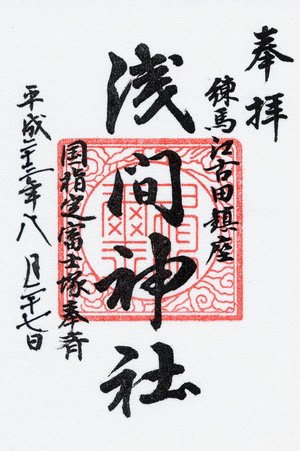 奉拝
練馬江古田鎮座
浅間神社
国指定富士塚奉斉
平成二十三年八月二十七日